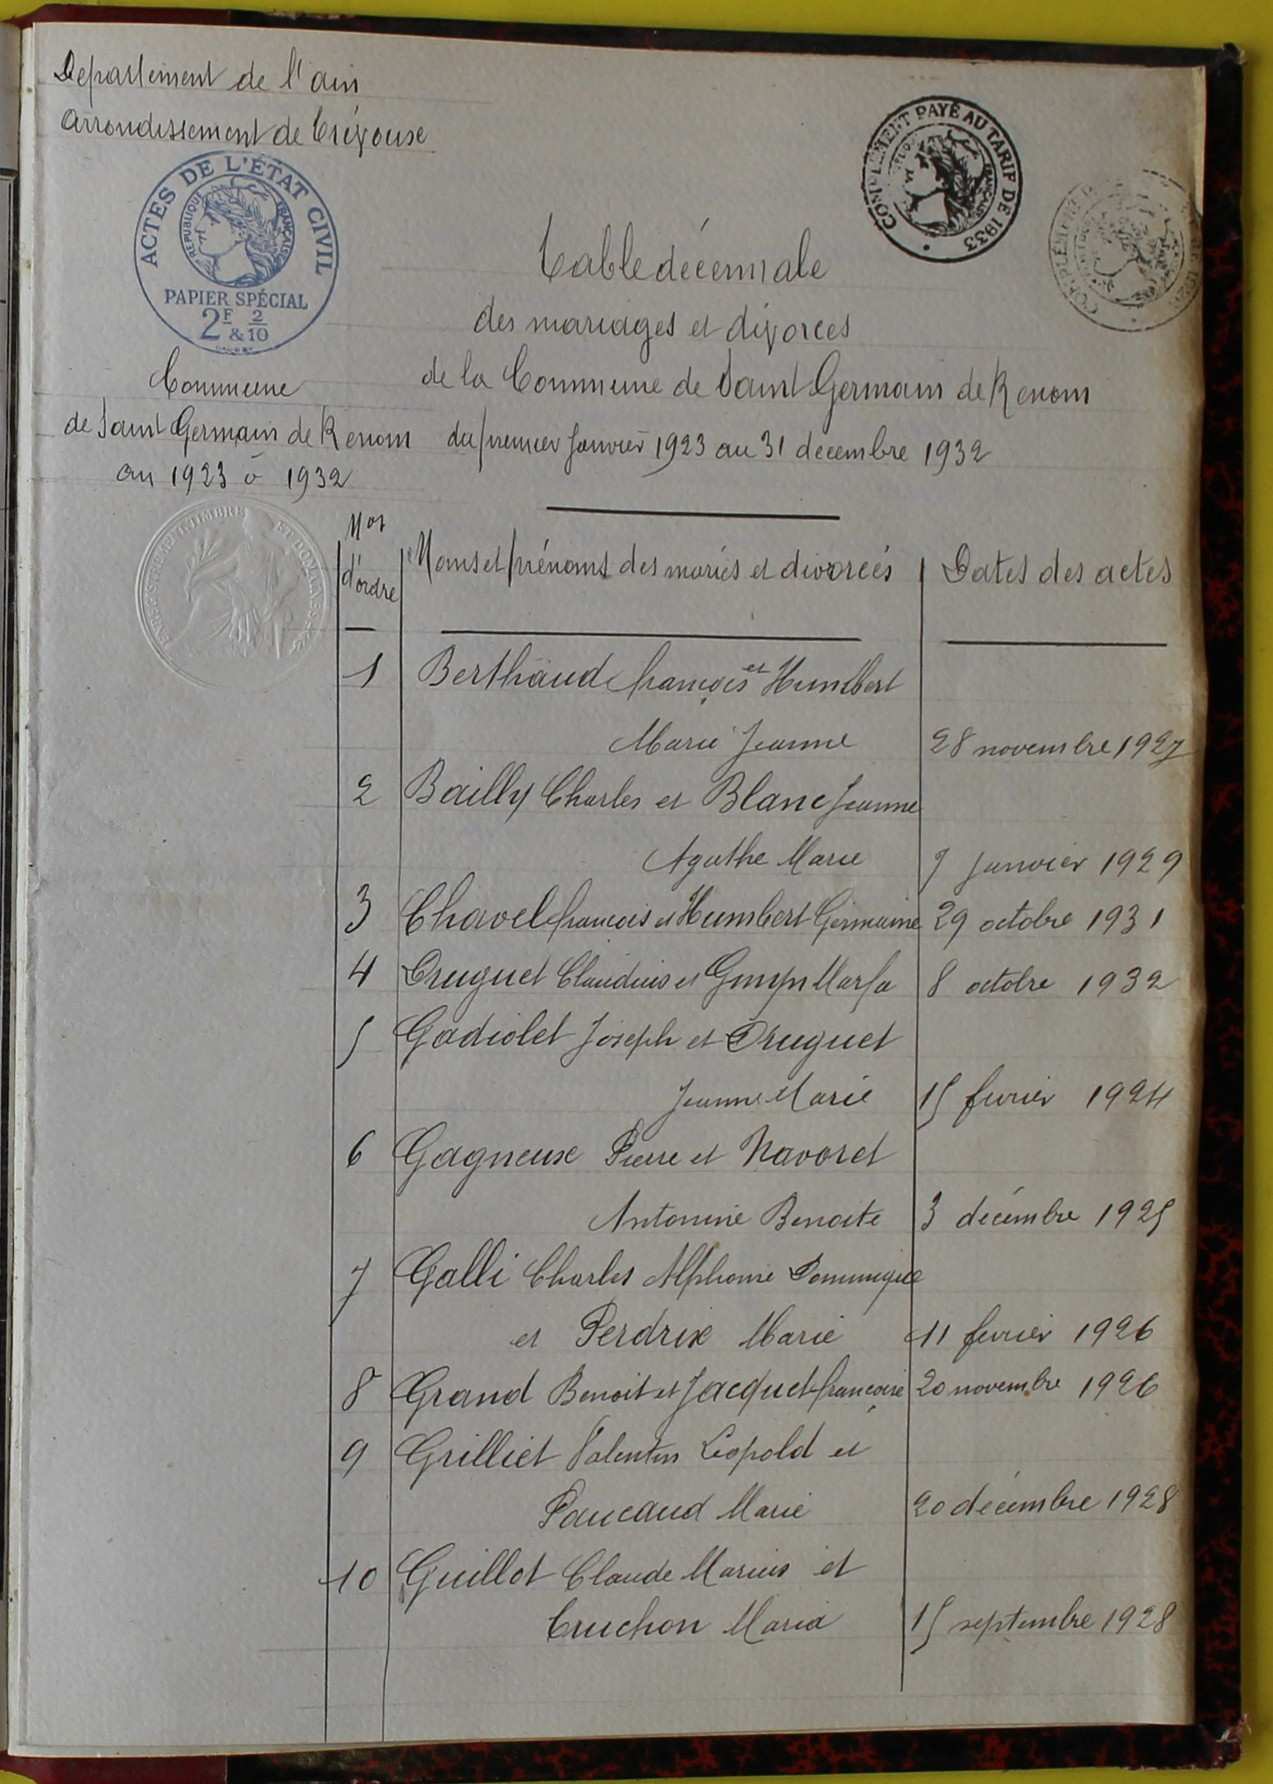 Departement de l'ain
arrondissement de Trévouse
ACTES DE L'ÉTAT CIVIL
RÉPUBLIQUE FRANÇAISE
PAPIER SPÉCIAL
2F & 2/10
COMPLÉMENT PAYÉ AU TARIF DE 1933
Table décennale
des mariages et divorces
de la Commune de Saint Germain de Renom
du premier Janvier 1923 au 31 decembre 1932
Commune
de Saint Germain de Renom
an 1923 à 1932
Nos d'ordre
Noms et prénoms des mariés et divorcés
Dates des actes
1 Berthaud françois et Humbert
Marie Jeanne 28 novembre 1927
2 Bailly Charles et Blanc Jeanne
Agathe Marie 7 Janvier 1929
3 Chavel francois et Humbert Germaine 29 octobre 1931
4 Druguet Claudius et Marfa 8 octobre 1932
5 Gadiolet Joseph et Druguet
Jeanne Marie 15 fevrier 1924
6 Gagneux Pierre et Navoret
Antonine Benoite 3 décembre 1925
7 Galli Charles Alphonse Dominique
et Perdrix Marie 11 fevrier 1926
8 Grand Benoit et Jacquet françoise 20 novembre 1926
9 Grilliet Valentin Léopold et
Paucaud Marie 20 décembre 1928
10 Guillot Claude Marius et
Cruchon Maria 15 septembre 1928